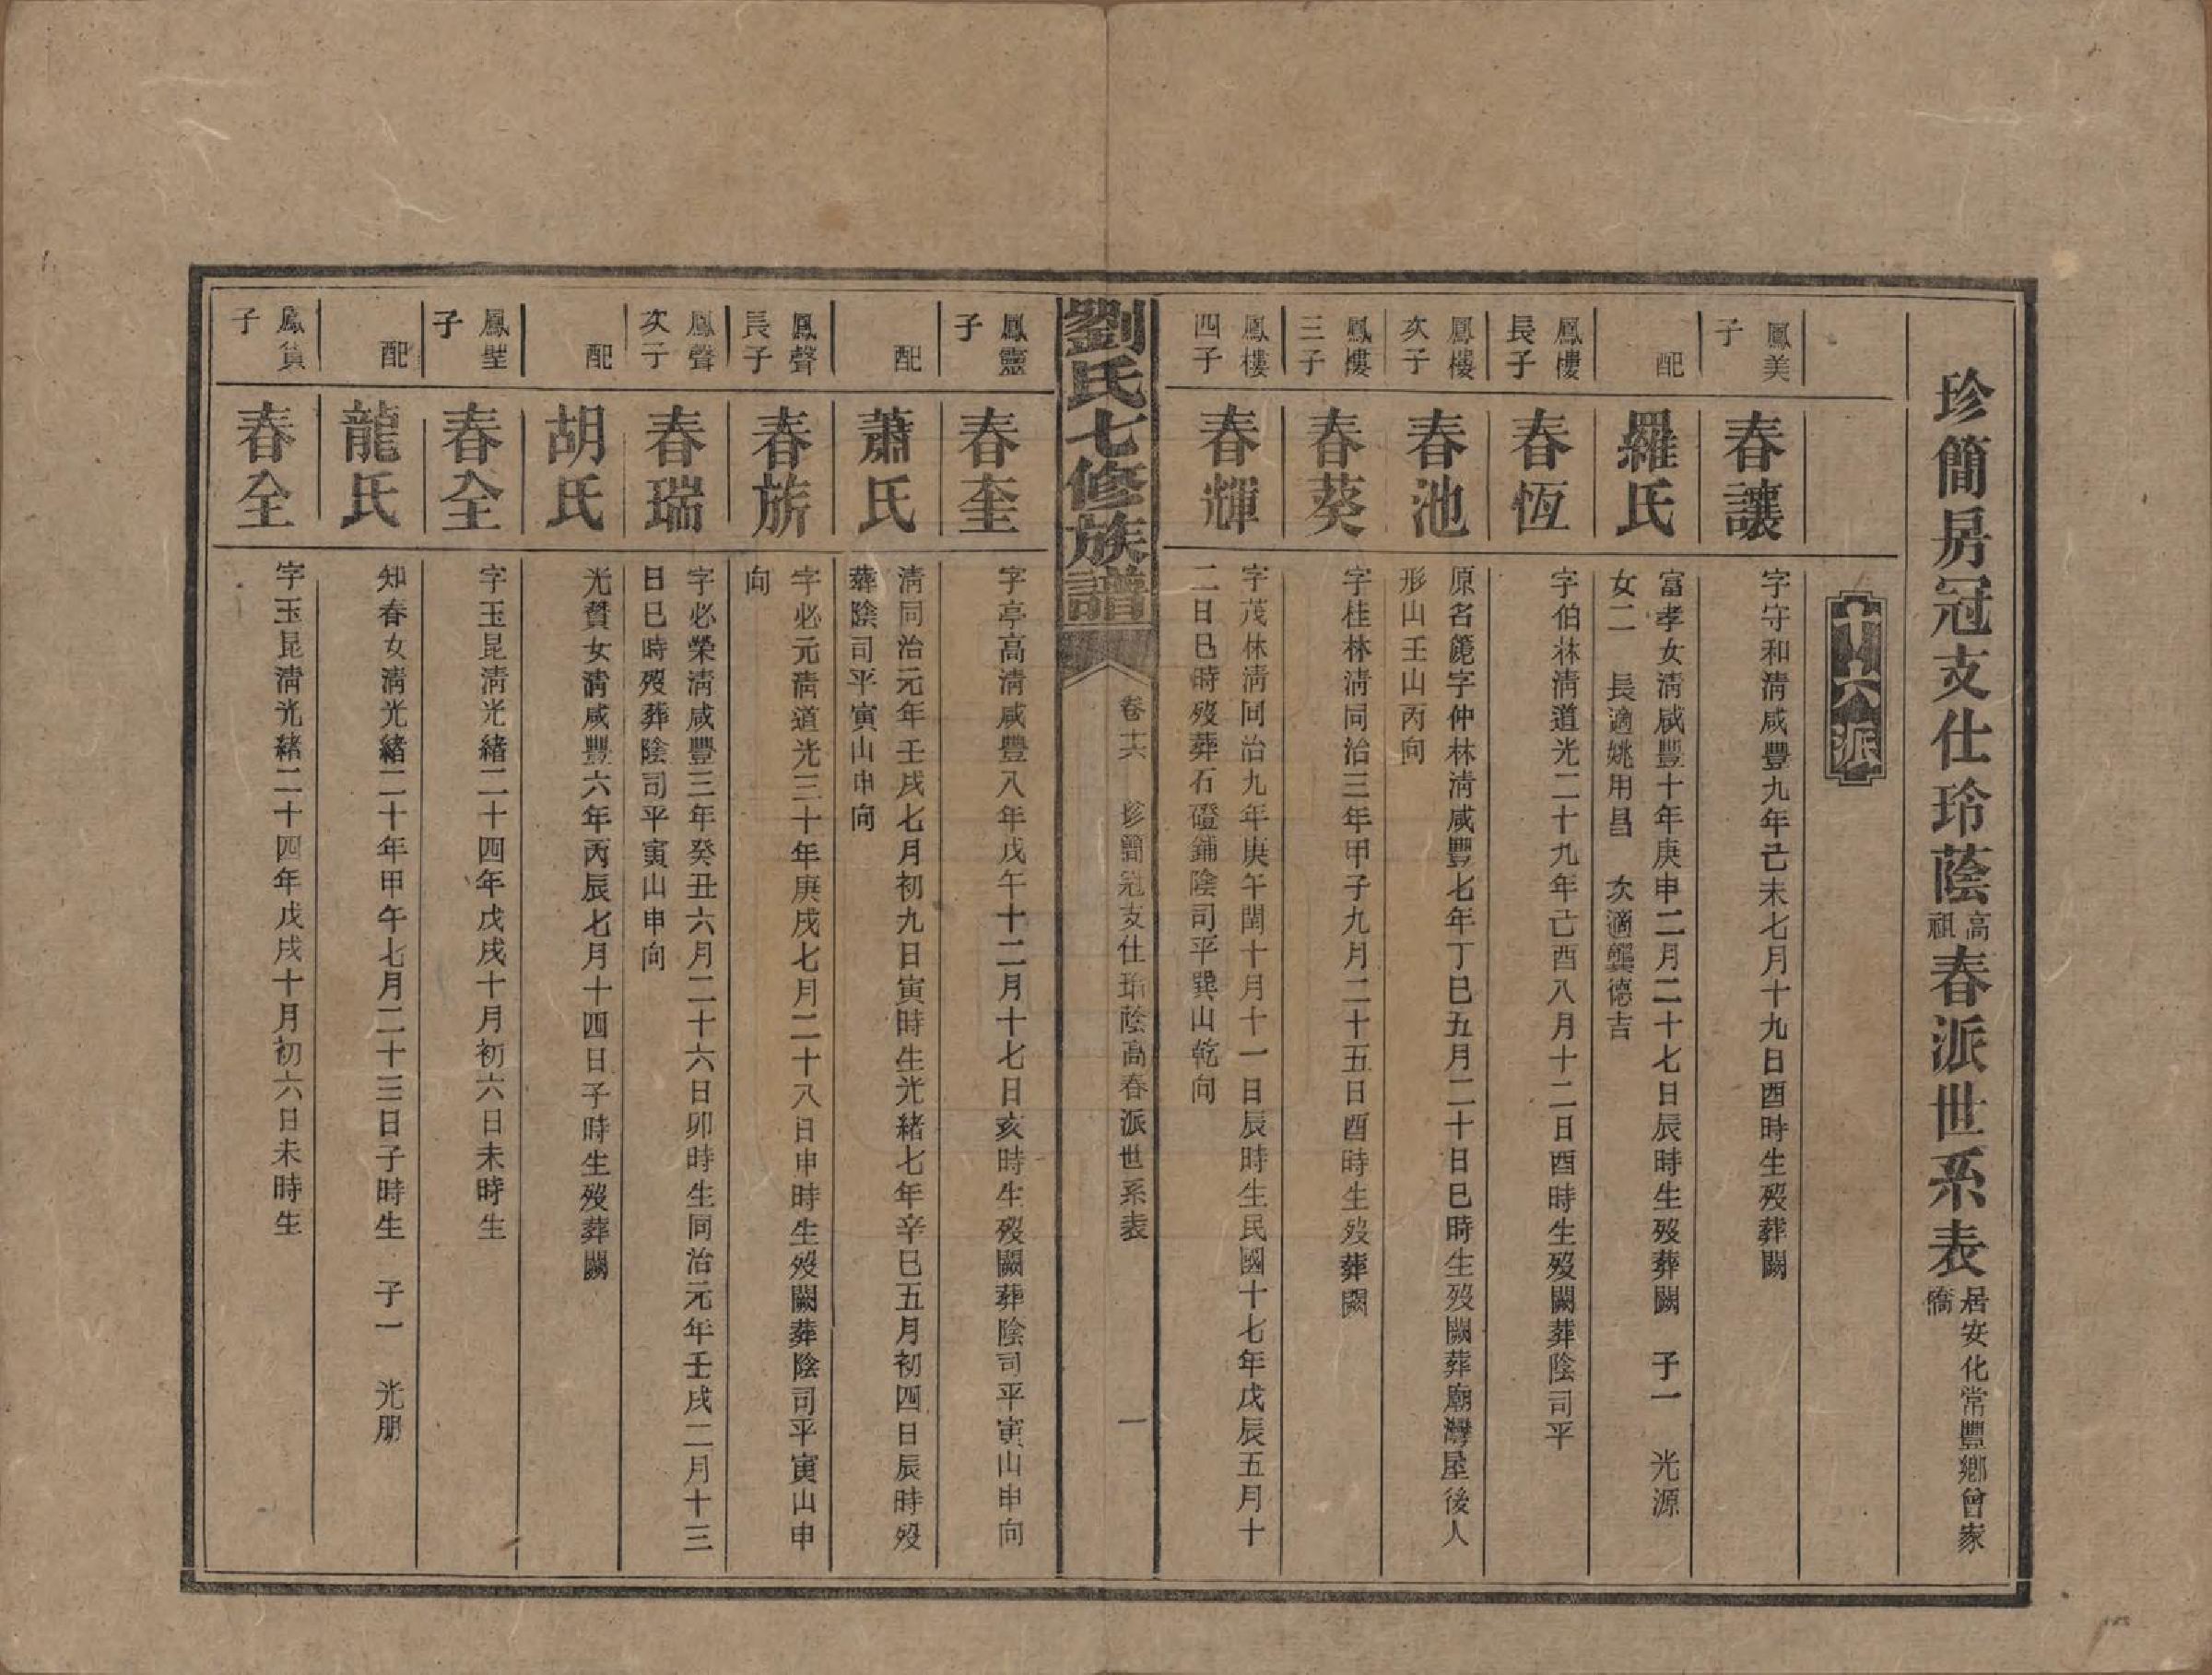 珍簡房冠支仕玲蔭高祖春派世系表居安化常豐鄉曾家僑
十六派
鳳美子
春讓
字守和清咸豐九年己未七月十九日酉時生歿葬闕
配
羅氏
富孝女清咸豐十年庚申二月二十七日辰時生歿葬闕 子一 光源
女二 長適姚用昌 次適龔德吉
鳳樓長子
春恆
字伯林清道光二十九年己酉八月十二日酉時生歿闕葬陰司平
鳳樓次子
春池
原名篪字仲林清咸豐七年丁巳五月二十日巳時生歿闕葬廟灣屋後人
形山壬山丙向
鳳樓三子
春葵
字桂林清同治三年甲子九月二十五日酉時生歿葬闕
鳳樓四子
春輝
字茂林清同治九年庚午閏十月十一日辰時生民國十七年戊辰五月十
二日巳時歿葬石磴鋪陰司平巽山乾向
劉氏七修族譜
卷十六 珍簡冠支仕玲蔭高春派世系表 一
鳳靈子
春奎
字亭高清咸豐八年戊午十二月十七日亥時生歿闕葬陰司平寅山申向
配
蕭氏
清同治元年壬戌七月初九日寅時生光緒七年辛巳五月初四日辰時歿
葬陰司平寅山申向
鳳聲長子
春旂
字必元清道光三十年庚戌七月二十八日申時生歿闕葬陰司平寅山申
向
鳳聲次子
春瑞
字必榮清咸豐三年癸丑六月二十六日卯時生同治元年壬戌二月十三
日巳時歿葬陰司平寅山申向
配
胡氏
光贊女清咸豐六年丙辰七月十四日子時生歿葬闕
鳳壁子
春全
字玉昆清光緒二十四年戊戌十月初六日未時生
配
龍氏
知春女清光緒二十年甲午七月二十三日子時生 子一 光朋
鳳賞子
春全
字玉昆清光緒二十四年戊戌十月初六日未時生